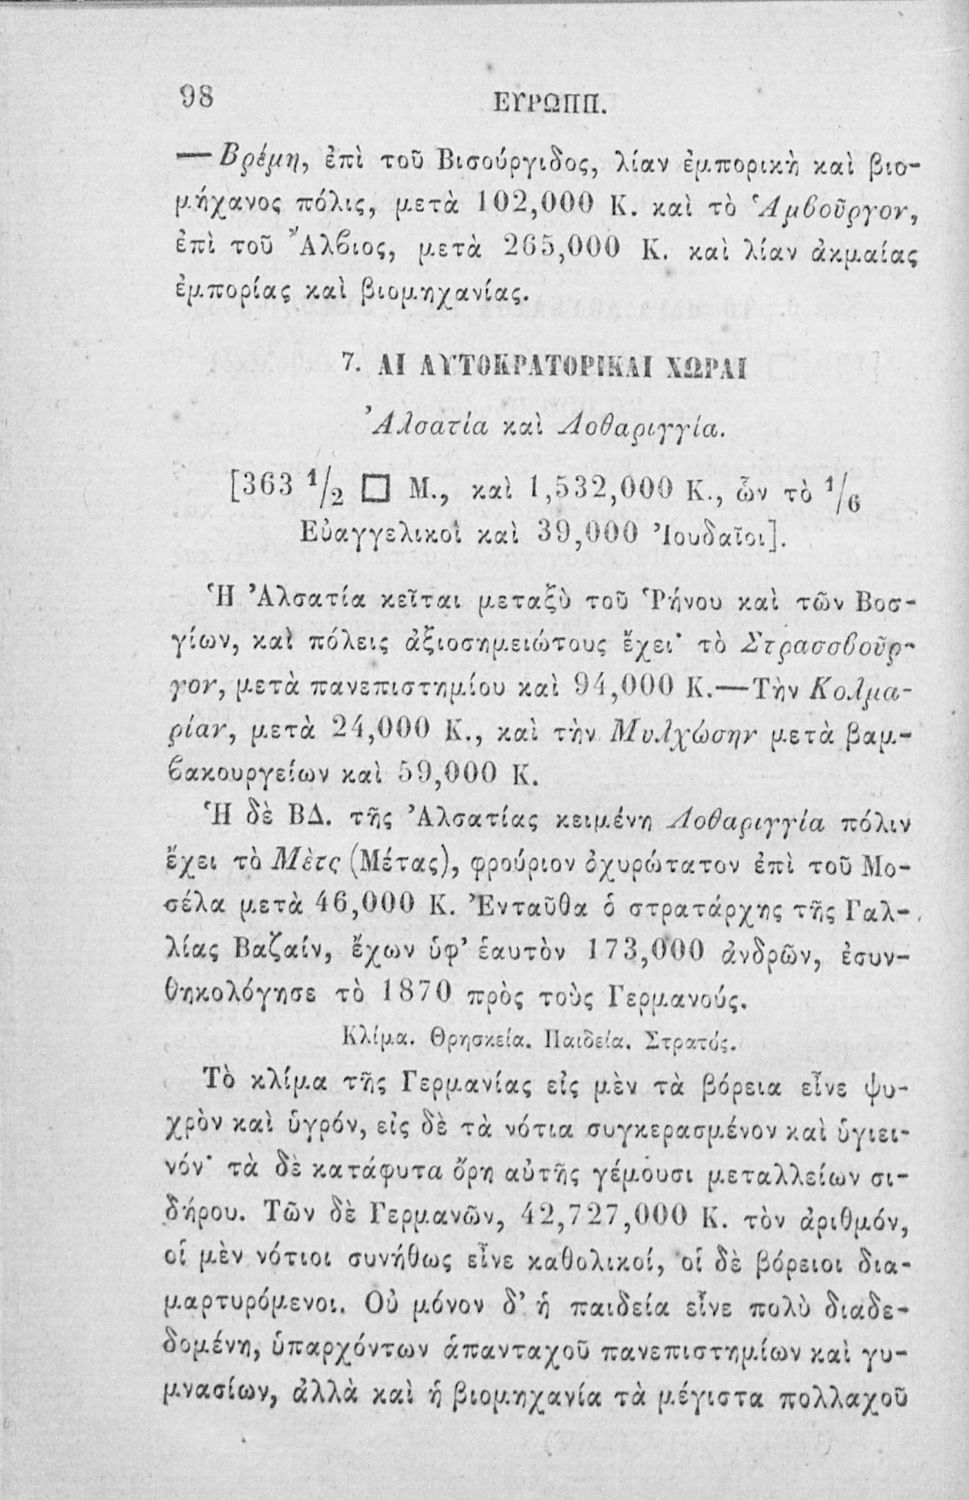 98 ΕΥΡΩΠΠ.
— Βρέμη, ἐπὶ τοῦ Βισούργιδος, λίαν ἐμπορικὴ καὶ βιο-
μήχανος πόλις, μετὰ 102,000 Κ. καὶ τὸ Ἁμβοῦργον,
ἐπὶ τοῦ Ἄλβιος, μετὰ 265,000 Κ. καὶ λίαν ἀκμαίας
ἐμπορίας καὶ βιομηχανίας.
7. ΑΙ ΑΥΤΟΚΡΑΤΟΡΙΚΑΙ ΧΩΡΑΙ
Ἀλσατία καὶ Λοθαριγγία.
[363 1/2 □ Μ., καὶ 1,532,000 Κ., ὧν τὸ 1/6
Εὐαγγελικοὶ καὶ 39,000 Ἰουδαῖοι].
Ἡ Ἀλσατία κεῖται μεταξὺ τοῦ Ῥήνου καὶ τῶν Βοσ-
γίων, καὶ πόλεις ἀξιοσημειώτους ἔχει· τὸ Στρασσβοῦρ-
γον, μετὰ πανεπιστημίου καὶ 94,000 Κ.—Τὴν Κολμα-
ρίαν, μετὰ 24,000 Κ., καὶ τὴν Μυλχώσην μετὰ βαμ-
βακουργείων καὶ 59,000 Κ.
Ἡ δὲ ΒΔ. τῆς Ἀλσατίας κειμένη Λοθαριγγία πόλιν
ἔχει τὸ Μὲτς (Μέτας), φρούριον ὀχυρώτατον ἐπὶ τοῦ Μο-
σέλα μετὰ 46,000 Κ. Ἐνταῦθα ὁ στρατάρχης τῆς Γαλ-
λίας Βαζαίν, ἔχων ὑφ' ἑαυτὸν 173,000 ἀνδρῶν, ἐσυν-
θηκολόγησε τὸ 1870 πρὸς τοὺς Γερμανούς.
Κλίμα. Θρησκεία. Παιδεία. Στρατός.
Τὸ κλίμα τῆς Γερμανίας εἰς μὲν τὰ βόρεια εἶνε ψυ-
χρὸν καὶ ὑγρόν, εἰς δὲ τὰ νότια συγκερασμένον καὶ ὑγιει-
νόν· τὰ δὲ κατάφυτα ὄρη αὐτῆς γέμουσι μεταλλείων σι-
δήρου. Τῶν δὲ Γερμανῶν, 42,727,000 Κ. τὸν ἀριθμόν,
οἱ μὲν νότιοι συνήθως εἶνε καθολικοί, οἱ δὲ βόρειοι δια-
μαρτυρόμενοι. Οὐ μόνον δ' ἡ παιδεία εἶνε πολὺ διαδε-
δομένη, ὑπαρχόντων ἁπανταχοῦ πανεπιστημίων καὶ γυ-
μνασίων, ἀλλὰ καὶ ἡ βιομηχανία τὰ μέγιστα πολλαχοῦ